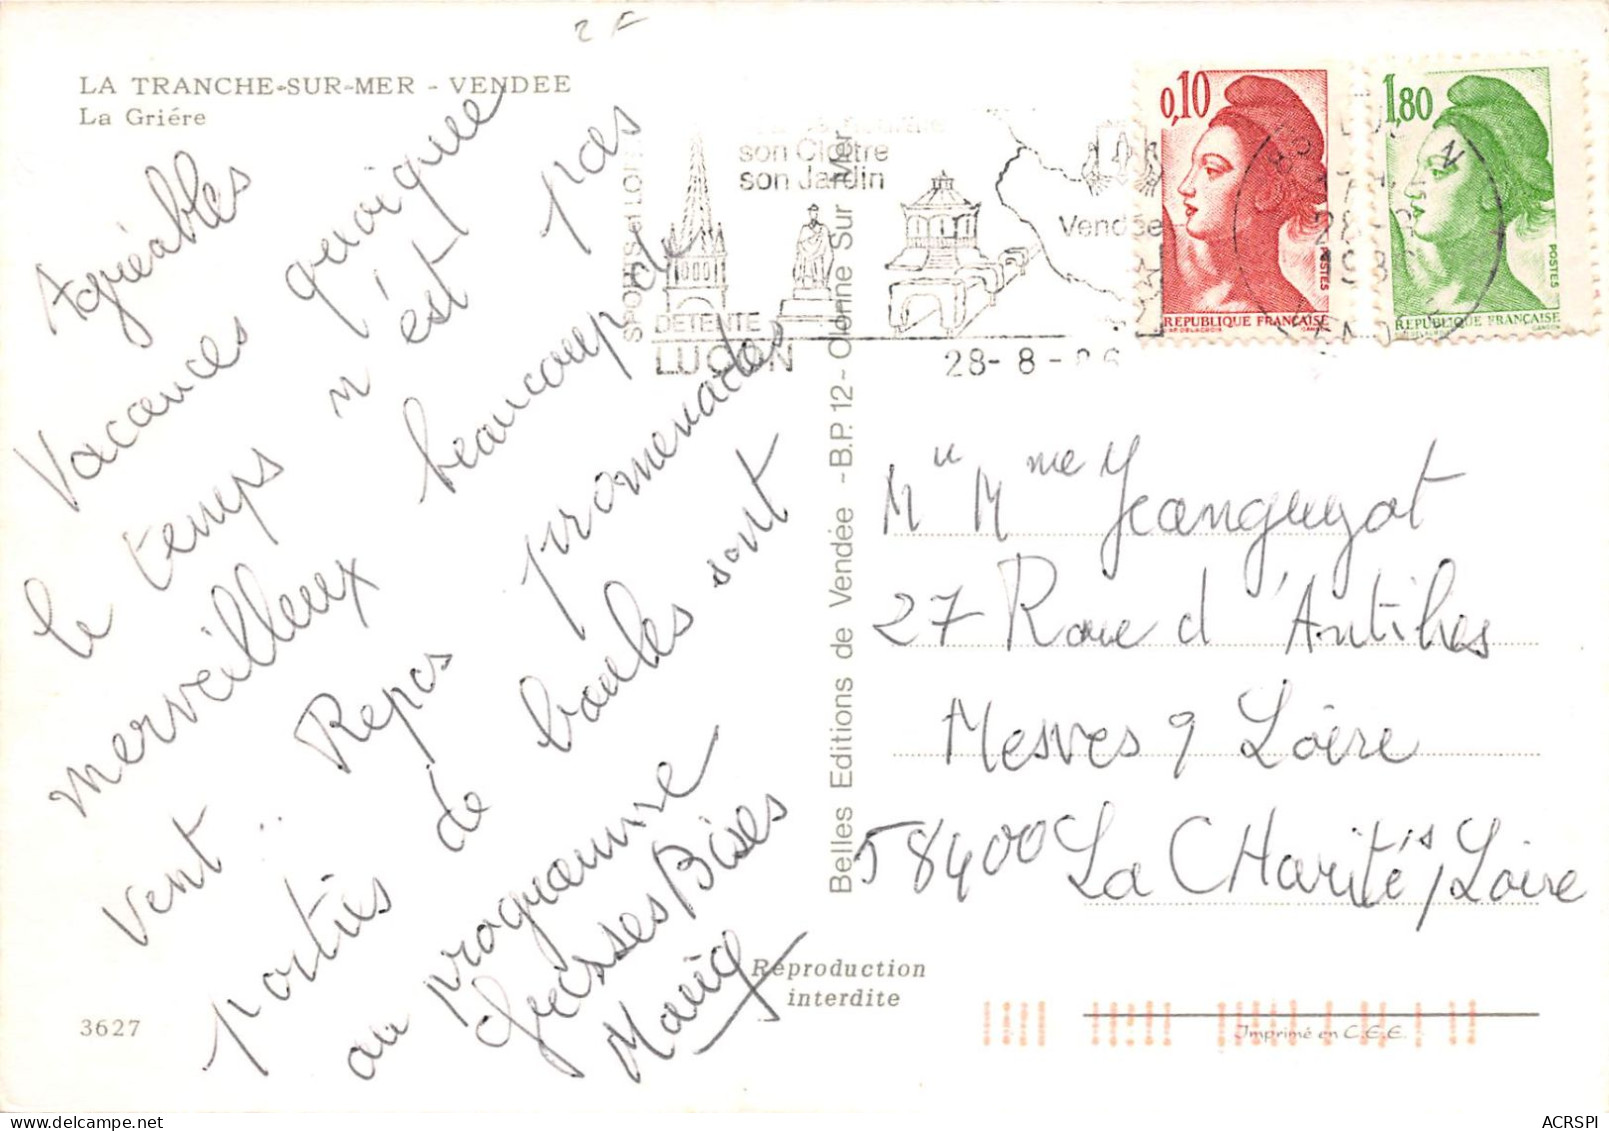 2 F
LA TRANCHE-SUR-MER - VENDEE
La Griére
Agréables
Vacances quoique
le temps n'est pas
merveilleux beaucoup de
vent .. Repos promenades
parties de boules sont
au programme
Grosses Bises
3627
SPORTS et LOI
DETENTE
LUÇON
son Cloître
son Jardin
Vendée
28-8-86
0,10
POSTES
REPUBLIQUE FRANÇAISE
1,80
POSTES
REPUBLIQUE FRANÇAISE
Belles Editions de Vendée - B.P. 12 - Olonne Sur Mer
Mr Mme Jeanguyot
27 Roue d'Antibes
Mesves s/ Loire
58400 La CHarité s/ Loire
Reproduction
interdite
Imprimé en C.E.E.
ACRSPI